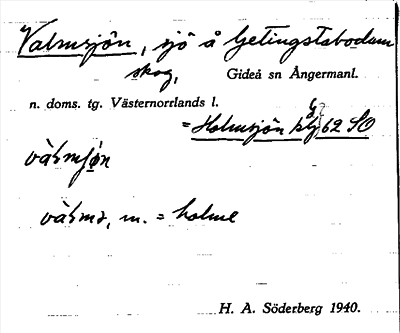 Valmsjön, sjö å Getingstabodam
skog, Gideå sn Ångermanl.
n. doms. tg. Västernorrlands l.
= Holmsjön 62 SO
vàlmsjøn
m. = holme
H. A. Söderberg 1940.